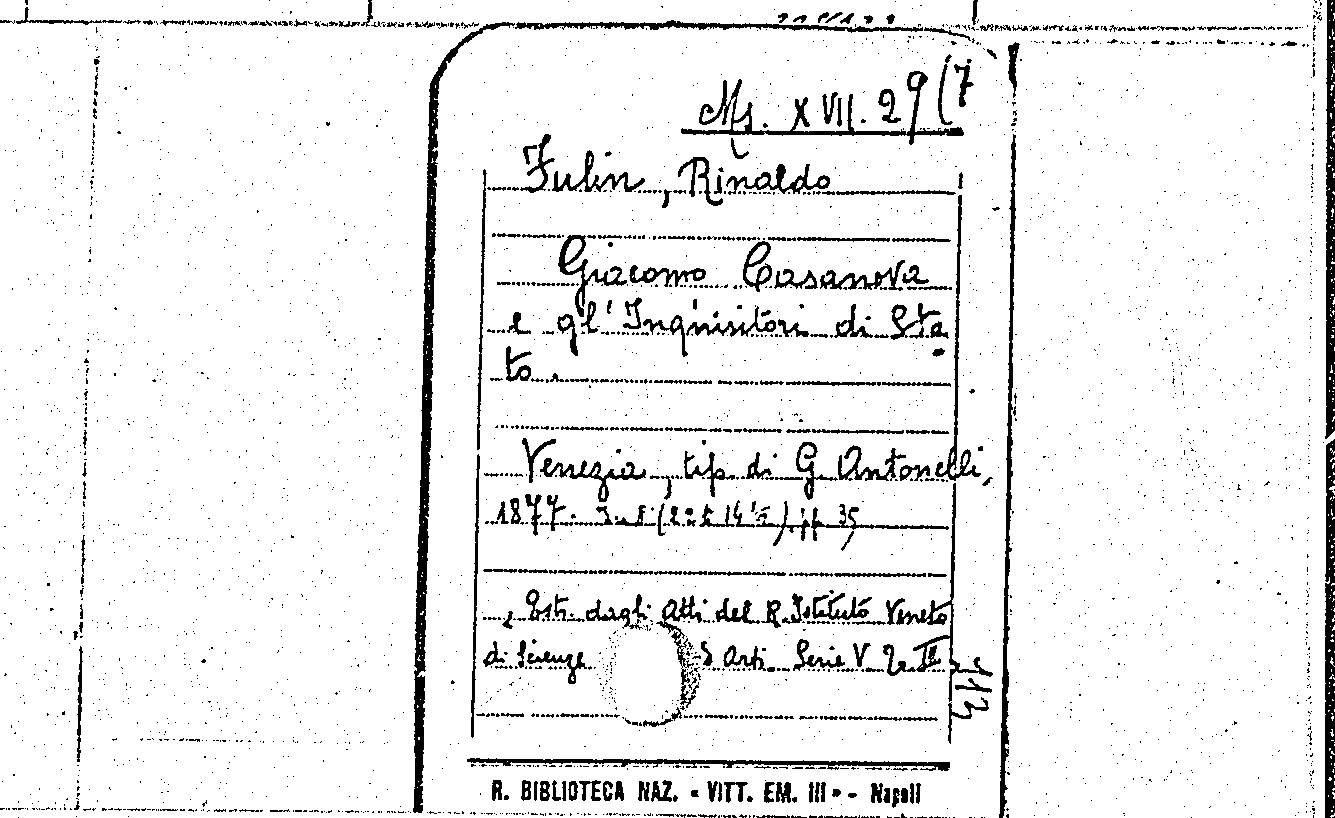 Ms. XVII. 29(7
Fulin, Rinaldo
Giacomo Casanova
e gl'Inquisitori di Sta
to.
Venezia, tip. di G. Antonelli,
1877. In 8° (22 ½ 14 ½) pp 35
Estr. dagli Atti del R. Istituto Veneto
di Scienze Arti. Serie V
113
R. BIBLIOTECA NAZ. « VITT. EM. III » - Napoli